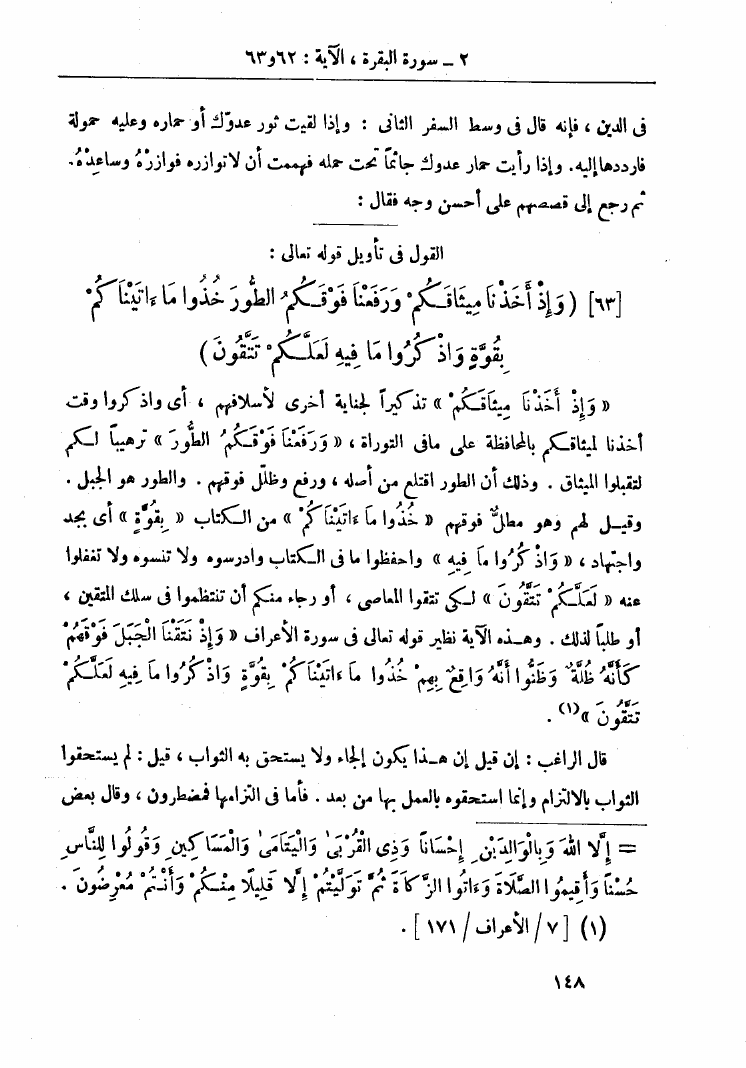 ٢ ـ سورة البقرة ، الآية : ٦٢و٦٣
فى الدين ، فإنه قال فى وسط السفر الثانى : وإذا لقيت ثور عدوّك أو حماره وعليه حمولة
فارددها إليه. وإذا رأيت حمار عدوك جاثماً تحت حمله فهممت أن لاتوازره فوازرْهُ وساعِدْهُ.
ثم رجع إلى قصصهم على أحسن وجه فقال :
القول فى تأويل قوله تعالى :
[٦٣] ( وَإِذْ أَخَذْنَا مِيثَاقَكُمْ وَرَفَعْنَا فَوْقَكُمُ الطُّورَ خُذُوا مَا ءَاتَيْنَاكُمْ
بِقُوَّةٍ وَاذْكُرُوا مَا فِيهِ لَعَلَّكُمْ تَتَّقُونَ )
« وَإِذْ أَخَذْنَا مِيثَاقَكُمْ » تذكيراً لجناية أخرى لأسلافهم ، أى واذكروا وقت
أخذنا لميثاقكم بالمحافظة على مافى التوراة ، « وَرَفَعْنَا فَوْقَكُمُ الطُّورَ » ترهيباً لكم
لتقبلوا الميثاق . وذلك أن الطور اقتلع من أصله ، ورفع وظلّل فوقهم . والطور هو الجبل .
وقيل لهم وهو مطلٌّ فوقهم « خُذُوا مَا ءَاتَيْنَاكُمْ » من الكتاب « بِقُوَّةٍ » أى بجد
واجتهاد ، « وَاذْكُرُوا مَا فِيهِ » واحفظوا ما فى الكتاب وادرسوه ولا تنسوه ولا تغفلوا
عنه « لَعَلَّكُمْ تَتَّقُونَ » لكى تتقوا المعاصى ، أو رجاء منكم أن تنتظموا فى سلك المتقين ،
أو طلباً لذلك . وهذه الآية نظير قوله تعالى فى سورة الأعراف « وَإِذْ نَتَقْنَا الْجَبَلَ فَوْقَهُمْ
كَأَنَّهُ ظُلَّةٌ وَظَنُّوا أَنَّهُ وَاقِعٌ بِهِمْ خُذُوا مَا ءَاتَيْنَاكُمْ بِقُوَّةٍ وَاذْكُرُوا مَا فِيهِ لَعَلَّكُمْ
تَتَّقُونَ »(١) .
قال الراغب : إن قيل إن هذا يكون إلجاء ولا يستحق به الثواب ، قيل : لم يستحقوا
الثواب بالالتزام وإنما استحقوه بالعمل بها من بعد . فأما فى التزامها فمضطرون ، وقال بعض
= إِلَّا اللهَ وَبِالْوَالِدَيْنِ إِحْسَاناً وَذِى الْقُرْبَىٰ وَالْيَتَامَىٰ وَالْمَسَاكِينِ وَقُولُوا لِلنَّاسِ
حُسْناً وَأَقِيمُوا الصَّلَاةَ وَءَاتُوا الزَّكَاةَ ثُمَّ تَوَلَّيْتُمْ إِلَّا قَلِيلًا مِنْكُمْ وَأَنْتُمْ مُعْرِضُونَ .
(١) [ ٧ / الأعراف / ١٧١ ] .
١٤٨